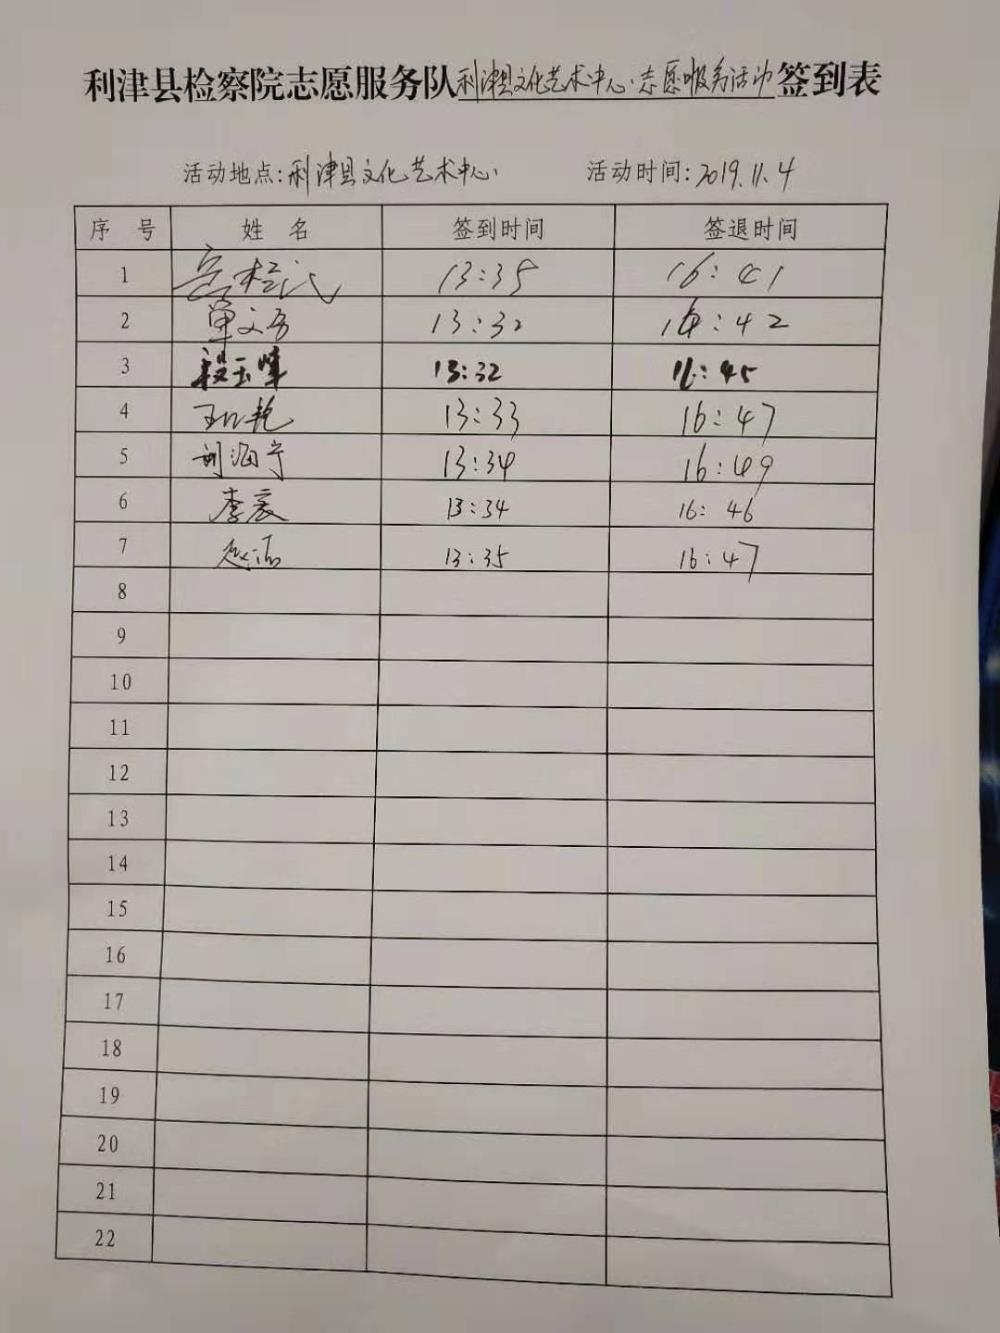 利津县检察院志愿服务队利津县文化艺术中心志愿服务活动签到表
活动地点:利津县文化艺术中心 活动时间:2019.11.4
序 号 姓 名 签到时间 签退时间
1 13:35 16:41
2 单文芳 13:32 16:42
3 段玉峰 13:32 16:45
4 13:33 16:47
5 刘海宁 13:34 16:49
6 李宸 13:34 16:46
7 赵洁 13:35 16:47
8
9
10
11
12
13
14
15
16
17
18
19
20
21
22